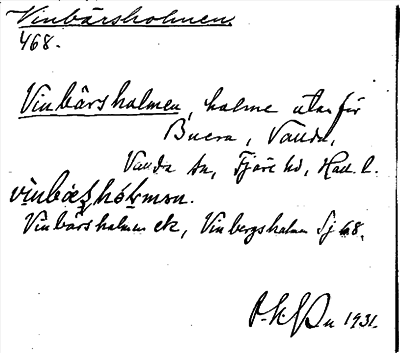 Vinbärsholmen.
468.
Vinbärsholmen, holme utanför
Buera, Vända,
Vanda sn, Fjäre hd, Hall. l.
vìnbæʂhòɫmən.
Vinbärsholmen ek, Vinbergsholm Sj 68.
1931.